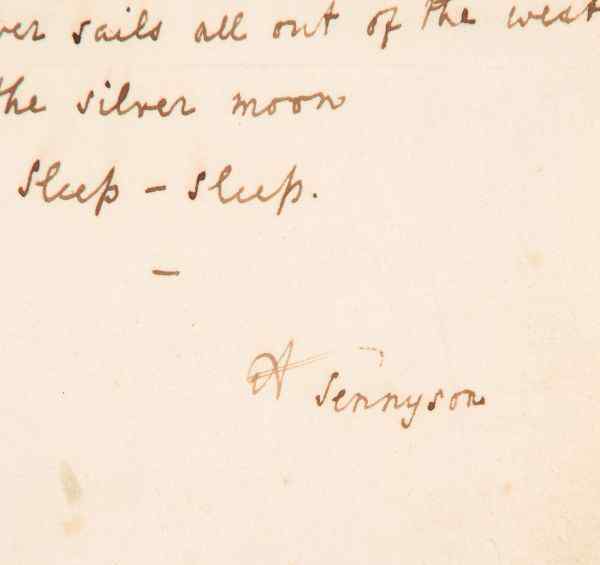 ver sails all out of the west
the silver moon
sleep – sleep.
–
A Tennyson